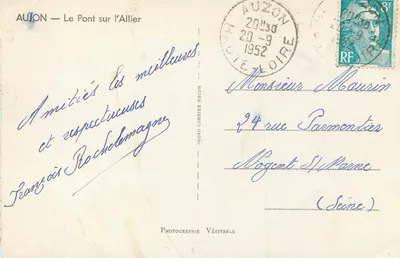 AUZON — Le Pont sur l'Allier
AUZON
20H30
20-9
1952
HTE-LOIRE
8F
RF
Amitiés les meilleures
et repectueuses
François Rochelemagne
PHOTO COMBIER MACON
Monsieur Maurin
24 rue Parmontier
Nogent S/Marne
(Seine)
PHOTOGRAPHIE VÉRITABLE